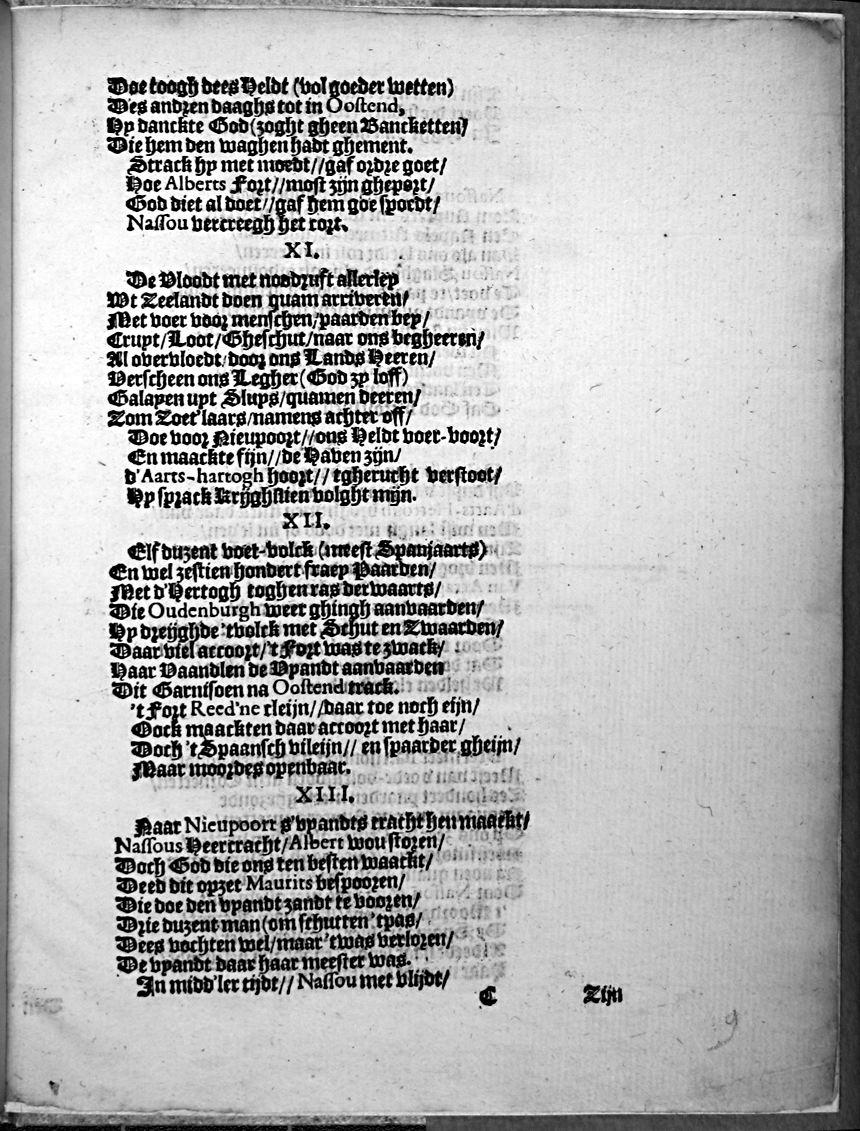 Doe toogh dees Heldt (vol goeder wetten)
Des andren daaghs tot in Oostend,
Hy danckte God (zoght gheen Bancketten)
Die hem den waghen hadt ghement.
Strack hy met moedt//gaf ordre goet/
Hoe Alberts Fort//most zijn gheport/
God diet al doet//gaf hem goe spoedt/
Nassou vercreegh het cort.
XI.
De Vloodt met noodruft allerley
Wt Zeelandt doen quam arriveren/
Met voer voor menschen/paarden bey/
Cruyt/Loot/Gheschut/naar ons begheeren/
Al overvloedt/door ons Lands Heeren/
Verscheen ons Legher (God zy loff)
Galayen uyt Sluys/quamen deeren/
Zom Zoet'laars/namens achter off/
Doe voor Nieupoort//ons Heldt voer-voort/
En maackte fijn//de Haven zijn/
d'Aarts-hartogh hoort//tgherucht verstoot/
Hy sprack Krijghslien volght mijn.
XII.
Elf duzent voet-volck (meest Spanjaarts)
En wel zestien hondert fraey Paarden/
Met d'Hertogh toghen ras derwaarts/
Die Oudenburgh weer ghingh aanvaarden/
Hy dreijghde 'tvolck met Schut en Zwaarden/
Daar viel accoort/'t Fort was te zwack/
Haar Vaandlen de Vyandt aanvaarden
Dit Garnisoen na Oostend track.
't Fort Reed'ne cleijn//daar toe noch eijn/
Oock maackten daar accoort met haar/
Doch 't Spaansch vileijn//en spaarder gheijn/
Maar moordes openbaar.
XIII.
Naar Nieupoort s'vyandts cracht hen maackt/
Nassous Heercracht/Albert wou storen/
Doch God die ons ten besten waackt/
Deed dit opzet Maurits bespooren/
Die doe den vyandt zandt te vooren/
Drie duzent man (om schutten 'tpas/
Dees vochten wel/maar 'twas verloren/
De vyandt daar haar meester was.
In midd'ler tijdt//Nassou met vlijdt/
C Zijn
9